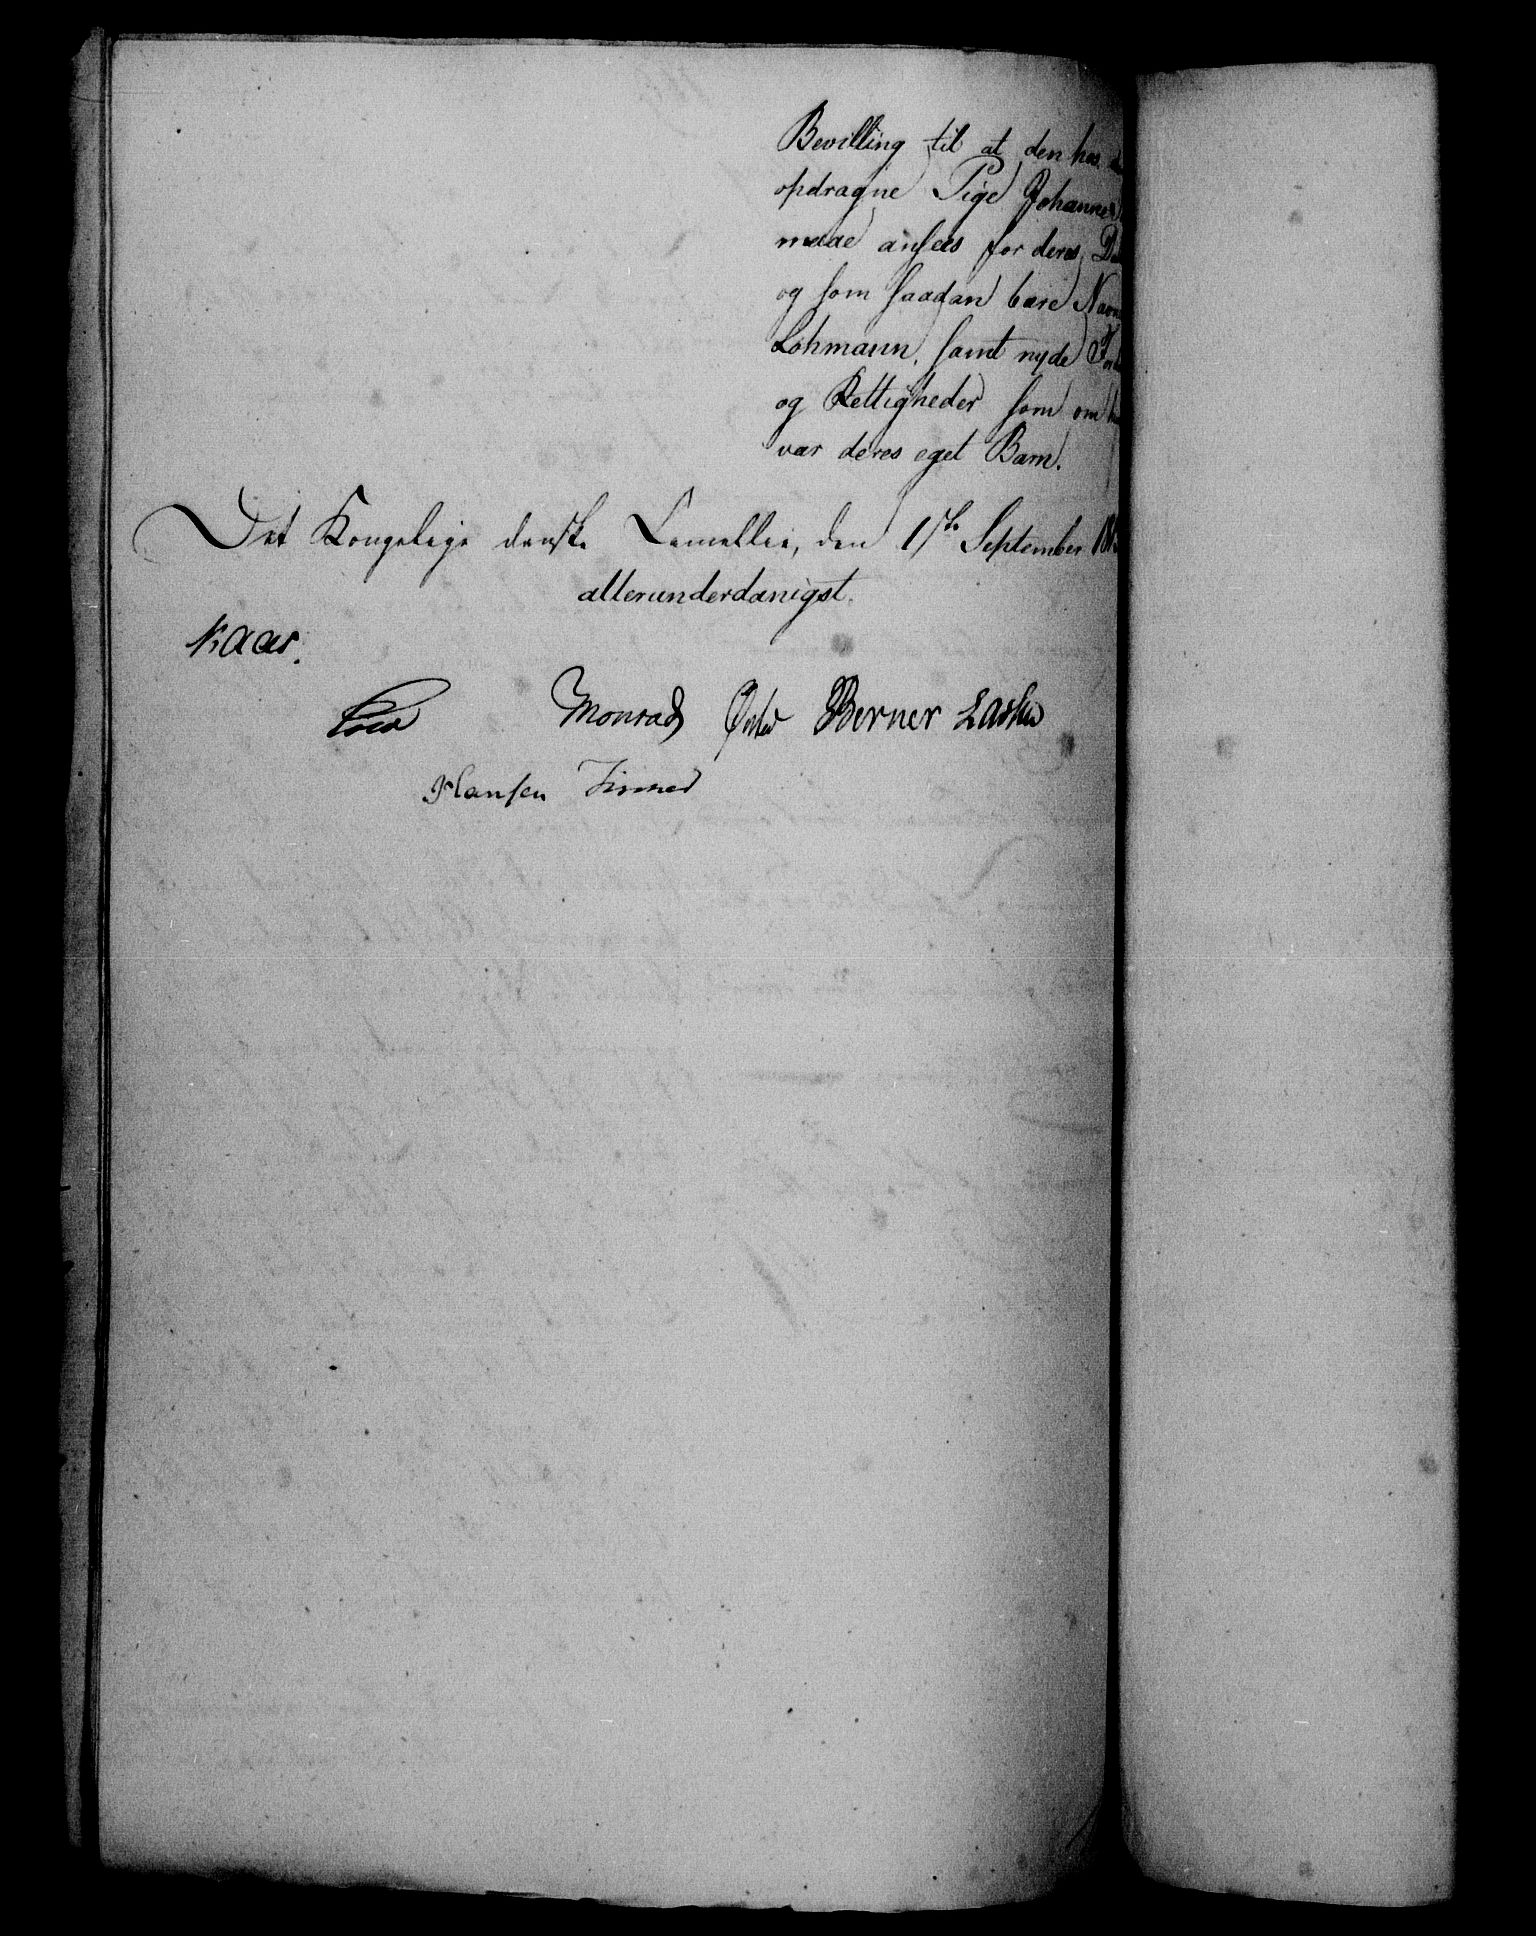 Bevilling til at den hos
opdragne Pige Johanne
maae ansees for deres
og som saadan bære Navn
Lohmann, samt nyde
og Rettigheder som om
var deres eget Barn.
Det Kongelige danske Cancellie, den September
allerunderdanigst.
Kaas.
Monrad Ørsted Berner Lassen
Hansen